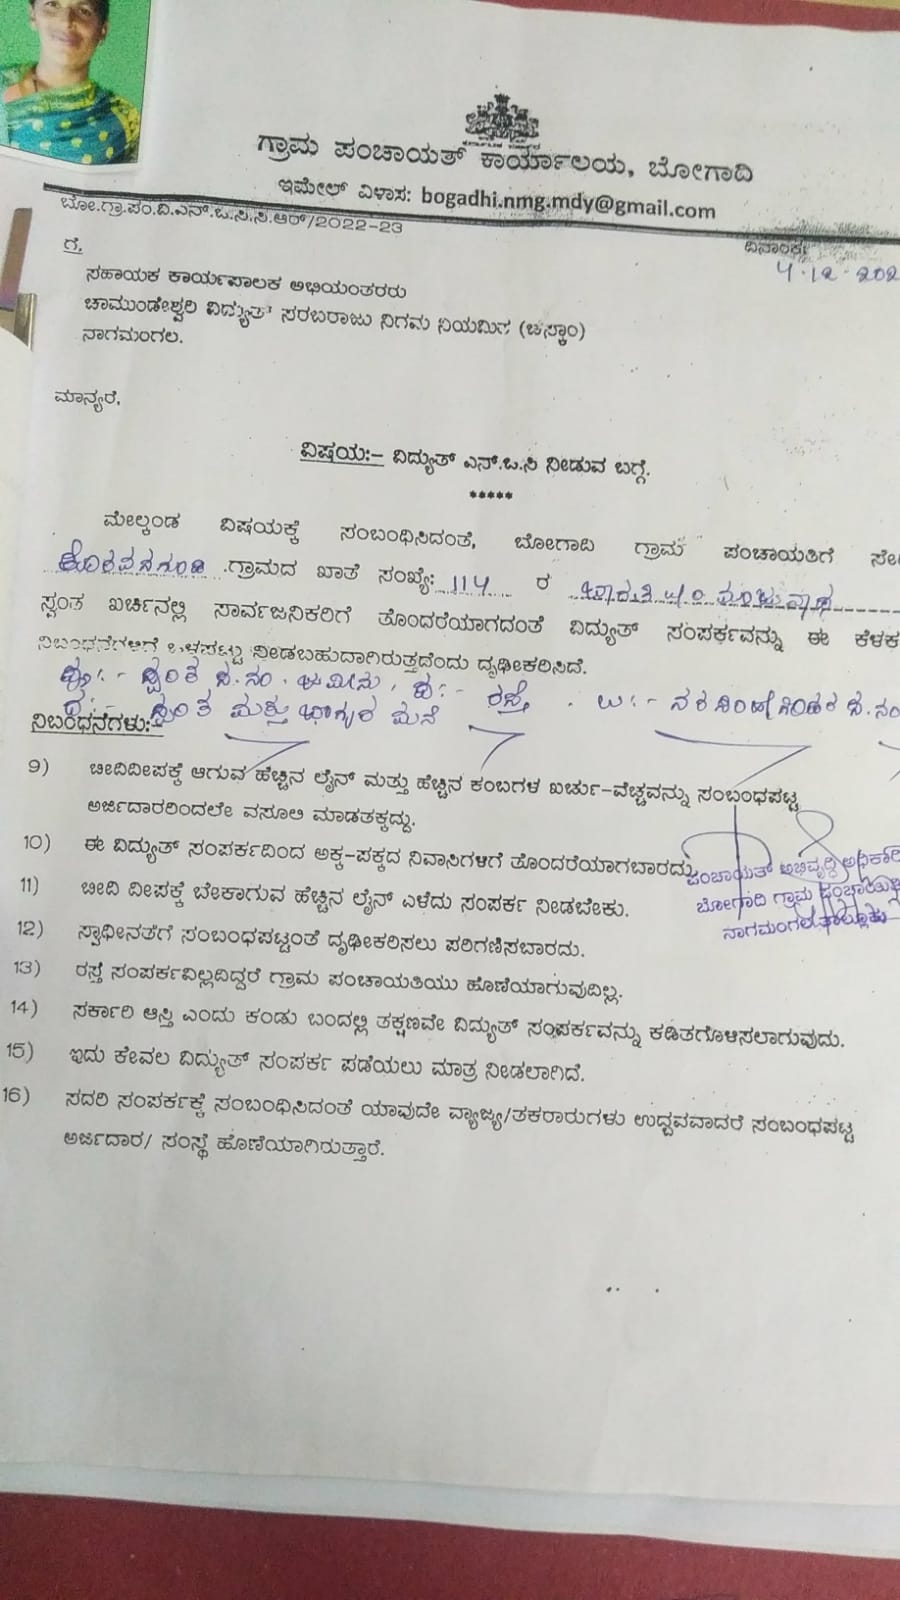 ಗ್ರಾಮ ಪಂಚಾಯತ್ ಕಾರ್ಯಾಲಯ, ಬೋಗಾದಿ
ಇಮೇಲ್ ವಿಳಾಸ: bogadhi.nmg.mdy@gmail.com
ಬೋ.ಗ್ರಾ.ಪಂ.ವಿ.ಎನ್.ಒ.ಸಿ.ಸಿ.ಆರ್/2022-23
ದಿನಾಂಕ:
4.12.202
ಗೆ,
ಸಹಾಯಕ ಕಾರ್ಯಪಾಲಕ ಅಭಿಯಂತರರು
ಚಾಮುಂಡೇಶ್ವರಿ ವಿದ್ಯುತ್ ಸರಬರಾಜು ನಿಗಮ ನಿಯಮಿತ (ಚೆಸ್ಕಾಂ)
ನಾಗಮಂಗಲ.
ಮಾನ್ಯರೆ,
ವಿಷಯ:- ವಿದ್ಯುತ್ ಎನ್.ಒ.ಸಿ ನೀಡುವ ಬಗ್ಗೆ.
*****
ಮೇಲ್ಕಂಡ ವಿಷಯಕ್ಕೆ ಸಂಬಂಧಿಸಿದಂತೆ, ಬೋಗಾದಿ ಗ್ರಾಮ ಪಂಚಾಯತಿಗೆ ಸೇ
ಗ್ರಾಮದ ಖಾತೆ ಸಂಖ್ಯೆ: 114 ರ
ಸ್ವಂತ ಖರ್ಚಿನಲ್ಲಿ ಸಾರ್ವಜನಿಕರಿಗೆ ತೊಂದರೆಯಾಗದಂತೆ ವಿದ್ಯುತ್ ಸಂಪರ್ಕವನ್ನು ಈ ಕೆಳಕ
ನಿಬಂಧನೆಗಳಿಗೆ ಒಳಪಟ್ಟು ನೀಡಬಹುದಾಗಿರುತ್ತದೆಂದು ದೃಢೀಕರಿಸಿದೆ.
ಪೂ:- ಸ್ವಂತ ಸ.ನಂ. ಜಮೀನು, ಪ:- ರಸ್ತೆ. ಉ:-
ದ:- ಸ್ವಂತ ಮತ್ತು ಭಾಗ್ಯರ ಮನೆ
ನಿಬಂಧನೆಗಳು:-
9) ಬೀದಿದೀಪಕ್ಕೆ ಆಗುವ ಹೆಚ್ಚಿನ ಲೈನ್ ಮತ್ತು ಹೆಚ್ಚಿನ ಕಂಬಗಳ ಖರ್ಚು-ವೆಚ್ಚವನ್ನು ಸಂಬಂಧಪಟ್ಟ
ಅರ್ಜಿದಾರರಿಂದಲೇ ವಸೂಲಿ ಮಾಡತಕ್ಕದ್ದು.
10) ಈ ವಿದ್ಯುತ್ ಸಂಪರ್ಕದಿಂದ ಅಕ್ಕ-ಪಕ್ಕದ ನಿವಾಸಿಗಳಿಗೆ ತೊಂದರೆಯಾಗಬಾರದು.
11) ಬೀದಿ ದೀಪಕ್ಕೆ ಬೇಕಾಗುವ ಹೆಚ್ಚಿನ ಲೈನ್ ಎಳೆದು ಸಂಪರ್ಕ ನೀಡಬೇಕು.
12) ಸ್ವಾಧೀನತೆಗೆ ಸಂಬಂಧಪಟ್ಟಂತೆ ದೃಢೀಕರಿಸಲು ಪರಿಗಣಿಸಬಾರದು.
13) ರಸ್ತೆ ಸಂಪರ್ಕವಿಲ್ಲದಿದ್ದರೆ ಗ್ರಾಮ ಪಂಚಾಯತಿಯು ಹೊಣೆಯಾಗುವುದಿಲ್ಲ.
14) ಸರ್ಕಾರಿ ಆಸ್ತಿ ಎಂದು ಕಂಡು ಬಂದಲ್ಲಿ ತಕ್ಷಣವೇ ವಿದ್ಯುತ್ ಸಂಪರ್ಕವನ್ನು ಕಡಿತಗೊಳಿಸಲಾಗುವುದು.
15) ಇದು ಕೇವಲ ವಿದ್ಯುತ್ ಸಂಪರ್ಕ ಪಡೆಯಲು ಮಾತ್ರ ನೀಡಲಾಗಿದೆ.
16) ಸದರಿ ಸಂಪರ್ಕಕ್ಕೆ ಸಂಬಂಧಿಸಿದಂತೆ ಯಾವುದೇ ವ್ಯಾಜ್ಯ/ತಕರಾರುಗಳು ಉದ್ಭವವಾದರೆ ಸಂಬಂಧಪಟ್ಟ
ಅರ್ಜಿದಾರ/ ಸಂಸ್ಥೆ ಹೊಣೆಯಾಗಿರುತ್ತಾರೆ.
ಪಂಚಾಯತ್ ಅಭಿವೃದ್ಧಿ ಅಧಿಕಾರಿ
ಬೋಗಾದಿ ಗ್ರಾಮ ಪಂಚಾಯಿತಿ
ನಾಗಮಂಗಲ ತಾಲ್ಲೂಕು